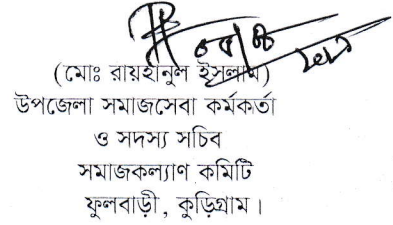 (মোঃ রায়হানুল ইসলাম)
উপজেলা সমাজসেবা কর্মকর্তা
ও সদস্য সচিব
সমাজকল্যাণ কমিটি
ফুলবাড়ী , কুড়িগ্রাম।